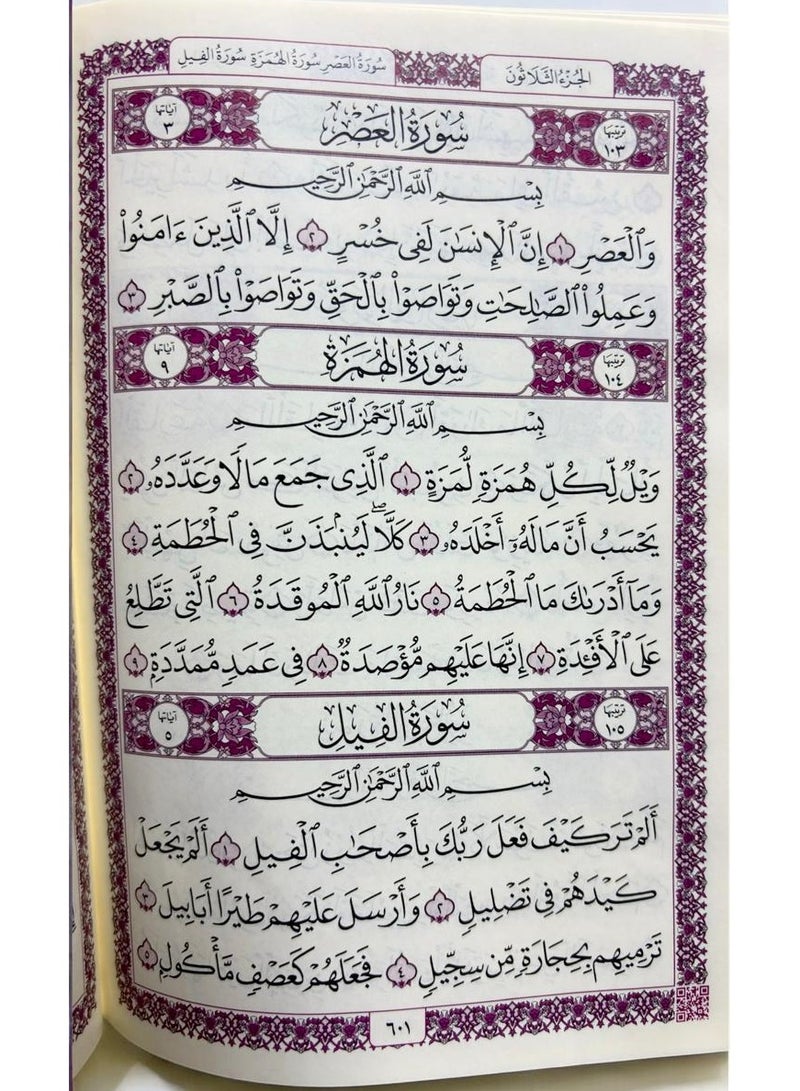 الجُزْءُ الثَّلَاثُونَ سُورَةُ العَصْرِ سُورَةُ الهُمَزَةِ سُورَةُ الفِيلِ
تَرْتِيبُهَا ١٠٣ سُورَةُ العَصْرِ آيَاتُهَا ٣
بِسْمِ ٱللَّهِ ٱلرَّحْمَٰنِ ٱلرَّحِيمِ
وَٱلْعَصْرِ ١ إِنَّ ٱلْإِنسَٰنَ لَفِى خُسْرٍ ٢ إِلَّا ٱلَّذِينَ ءَامَنُوا۟
وَعَمِلُوا۟ ٱلصَّٰلِحَٰتِ وَتَوَاصَوْا۟ بِٱلْحَقِّ وَتَوَاصَوْا۟ بِٱلصَّبْرِ ٣
تَرْتِيبُهَا ١٠٤ سُورَةُ الهُمَزَةِ آيَاتُهَا ٩
بِسْمِ ٱللَّهِ ٱلرَّحْمَٰنِ ٱلرَّحِيمِ
وَيْلٌ لِّكُلِّ هُمَزَةٍ لُّمَزَةٍ ١ ٱلَّذِى جَمَعَ مَالًا وَعَدَّدَهُۥ ٢
يَحْسَبُ أَنَّ مَالَهُۥٓ أَخْلَدَهُۥ ٣ كَلَّا ۖ لَيُنۢبَذَنَّ فِى ٱلْحُطَمَةِ ٤
وَمَآ أَدْرَىٰكَ مَا ٱلْحُطَمَةُ ٥ نَارُ ٱللَّهِ ٱلْمُوقَدَةُ ٦ ٱلَّتِى تَطَّلِعُ
عَلَى ٱلْأَفْـِٔدَةِ ٧ إِنَّهَا عَلَيْهِم مُّؤْصَدَةٌ ٨ فِى عَمَدٍ مُّمَدَّدَةٍ ٩
تَرْتِيبُهَا ١٠٥ سُورَةُ الفِيلِ آيَاتُهَا ٥
بِسْمِ ٱللَّهِ ٱلرَّحْمَٰنِ ٱلرَّحِيمِ
أَلَمْ تَرَ كَيْفَ فَعَلَ رَبُّكَ بِأَصْحَٰبِ ٱلْفِيلِ ١ أَلَمْ يَجْعَلْ
كَيْدَهُمْ فِى تَضْلِيلٍ ٢ وَأَرْسَلَ عَلَيْهِمْ طَيْرًا أَبَابِيلَ ٣
تَرْمِيهِم بِحِجَارَةٍ مِّن سِجِّيلٍ ٤ فَجَعَلَهُمْ كَعَصْفٍ مَّأْكُولٍۭ ٥
٦٠١